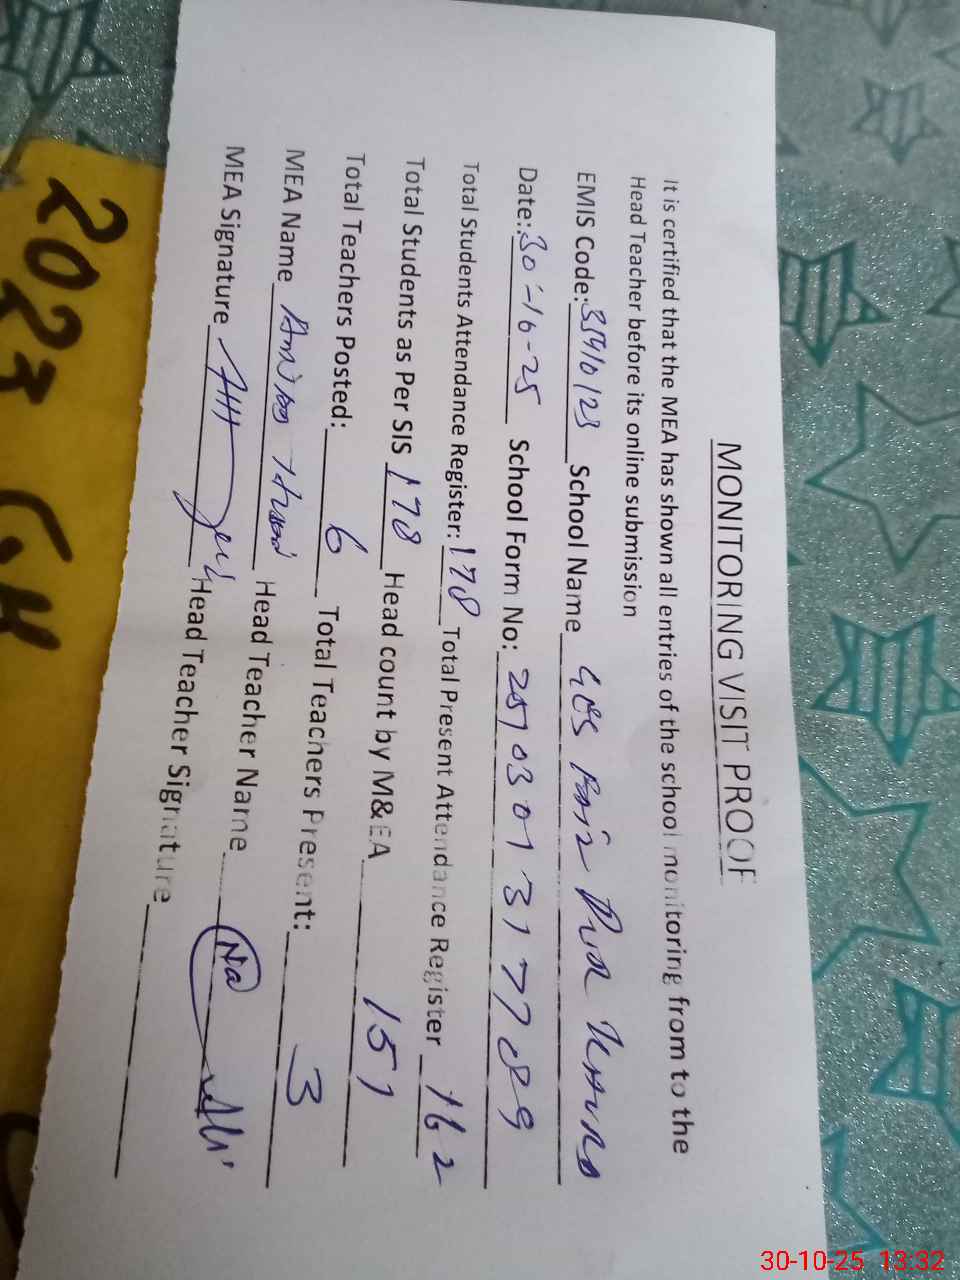 MONITORING VISIT PROOF
It is certified that the MEA has shown all entries of the school monitoring from to the
Head Teacher before its online submission
EMIS Code: 35910123 School Name GES
Date: 30-10-25 School Form No: 2570301317789
Total Students Attendance Register: 178 Total Present Attendance Register 162
Total Students as Per SIS 178 Head count by M&EA 151
Total Teachers Posted: 6 Total Teachers Present: 3
MEA Name Head Teacher Name Na
MEA Signature Head Teacher Signature
2023
30-10-25 13:32